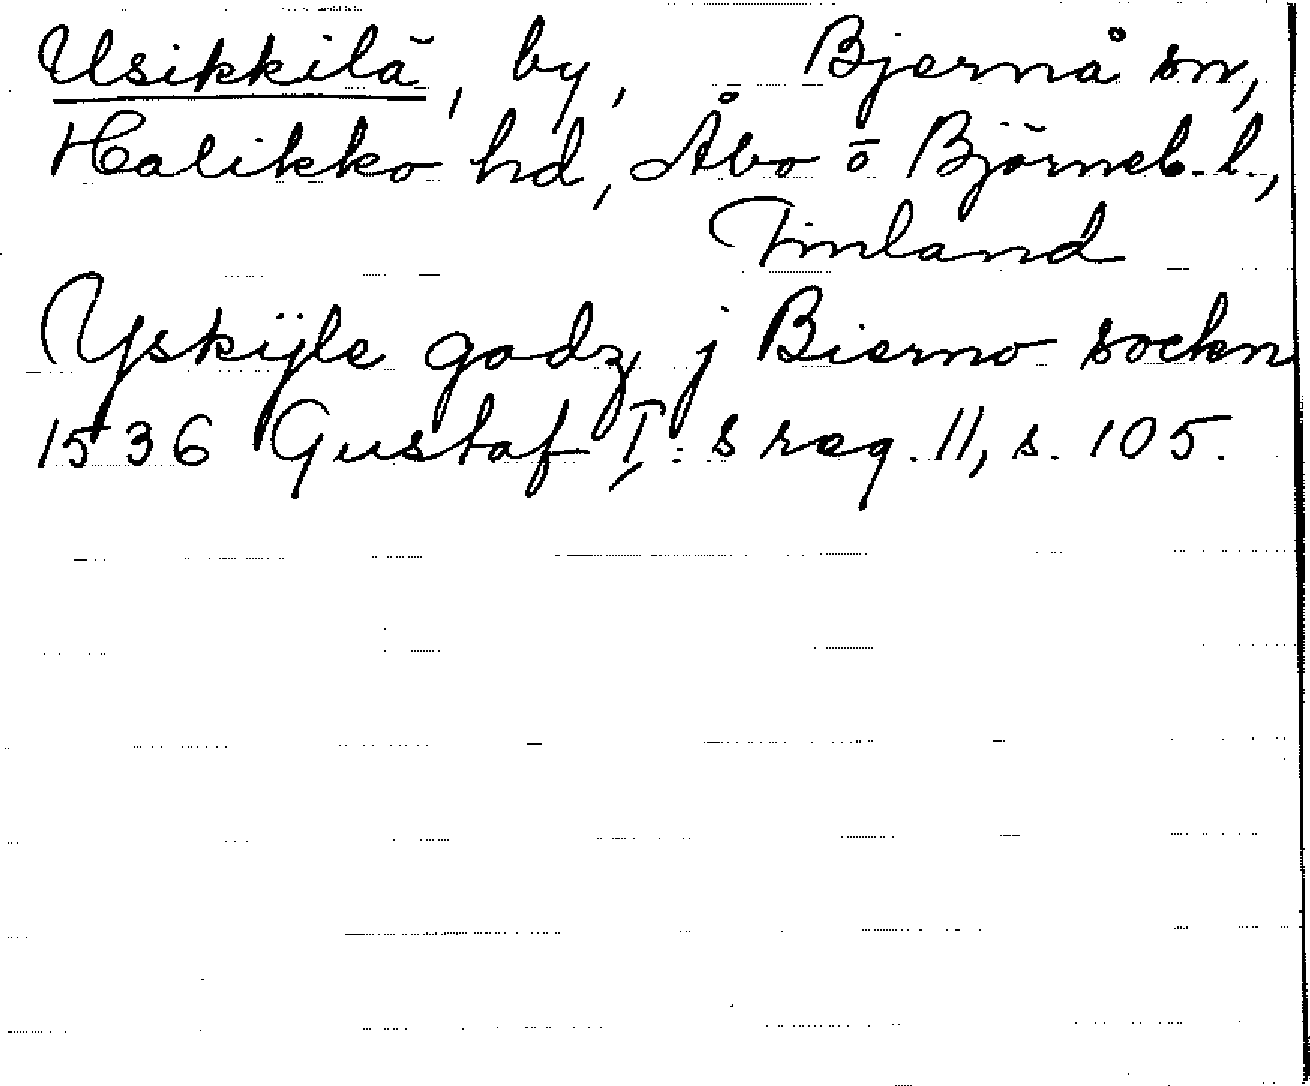 Usikkilä, by, Bjernå sn,
Halikko hd, Åbo o Björneb. l.,
Finland
Yskÿle godz j Bierno sockn
1536 Gustaf I:s reg. 11, s. 105.